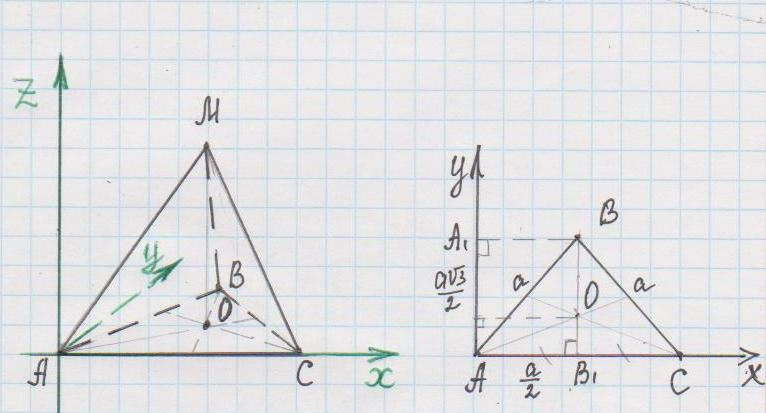 Z
M
y
B
O
A
C
x
y
B
A₁
a√3
2
a
a
O
A
a
2
B₁
C
x